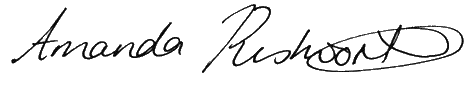 Amanda Rishworth